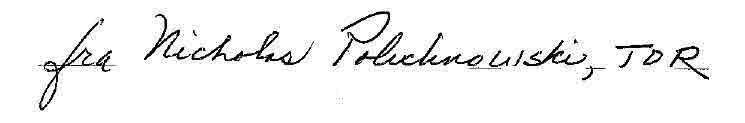 fra Nicholas Polichnowski, TOR